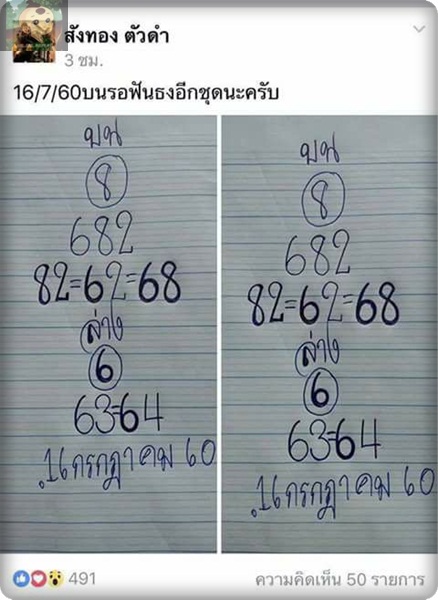 สังทอง ตัวดำ
3 ชม.
16/7/60บนรอฟันธงอีกชุดนะครับ
บน
8
682
82=62=68
ล่าง
6
63=64
.16กรกฎาคม 60
บน
8
682
82=62=68
ล่าง
6
63=64
.16กรกฎาคม 60
491
ความคิดเห็น 50 รายการ